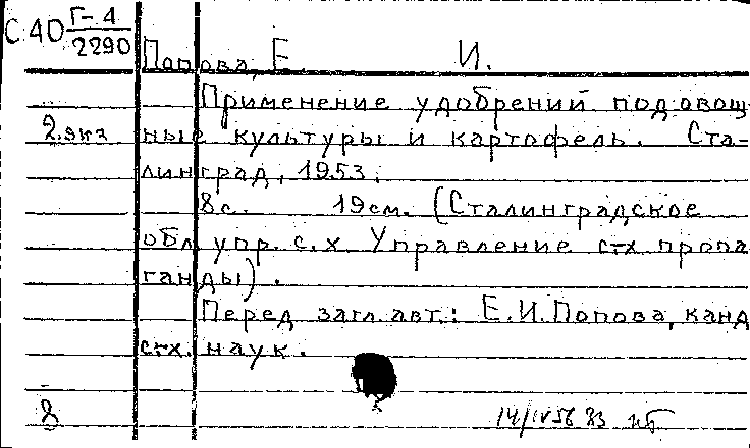 С.40 Г-4
2290
Попова, Е. И.
Применение удобрений под овощ-
2 экз ные культуры и картофель. Ста-
линград, 1953.
8с. 19см. (Сталинградское
обл. упр. с.х. Управление с-х пропа
ганды).
Перед загл. авт.: Е.И.Попова, канд
с-х. наук.
8 14/IV 56